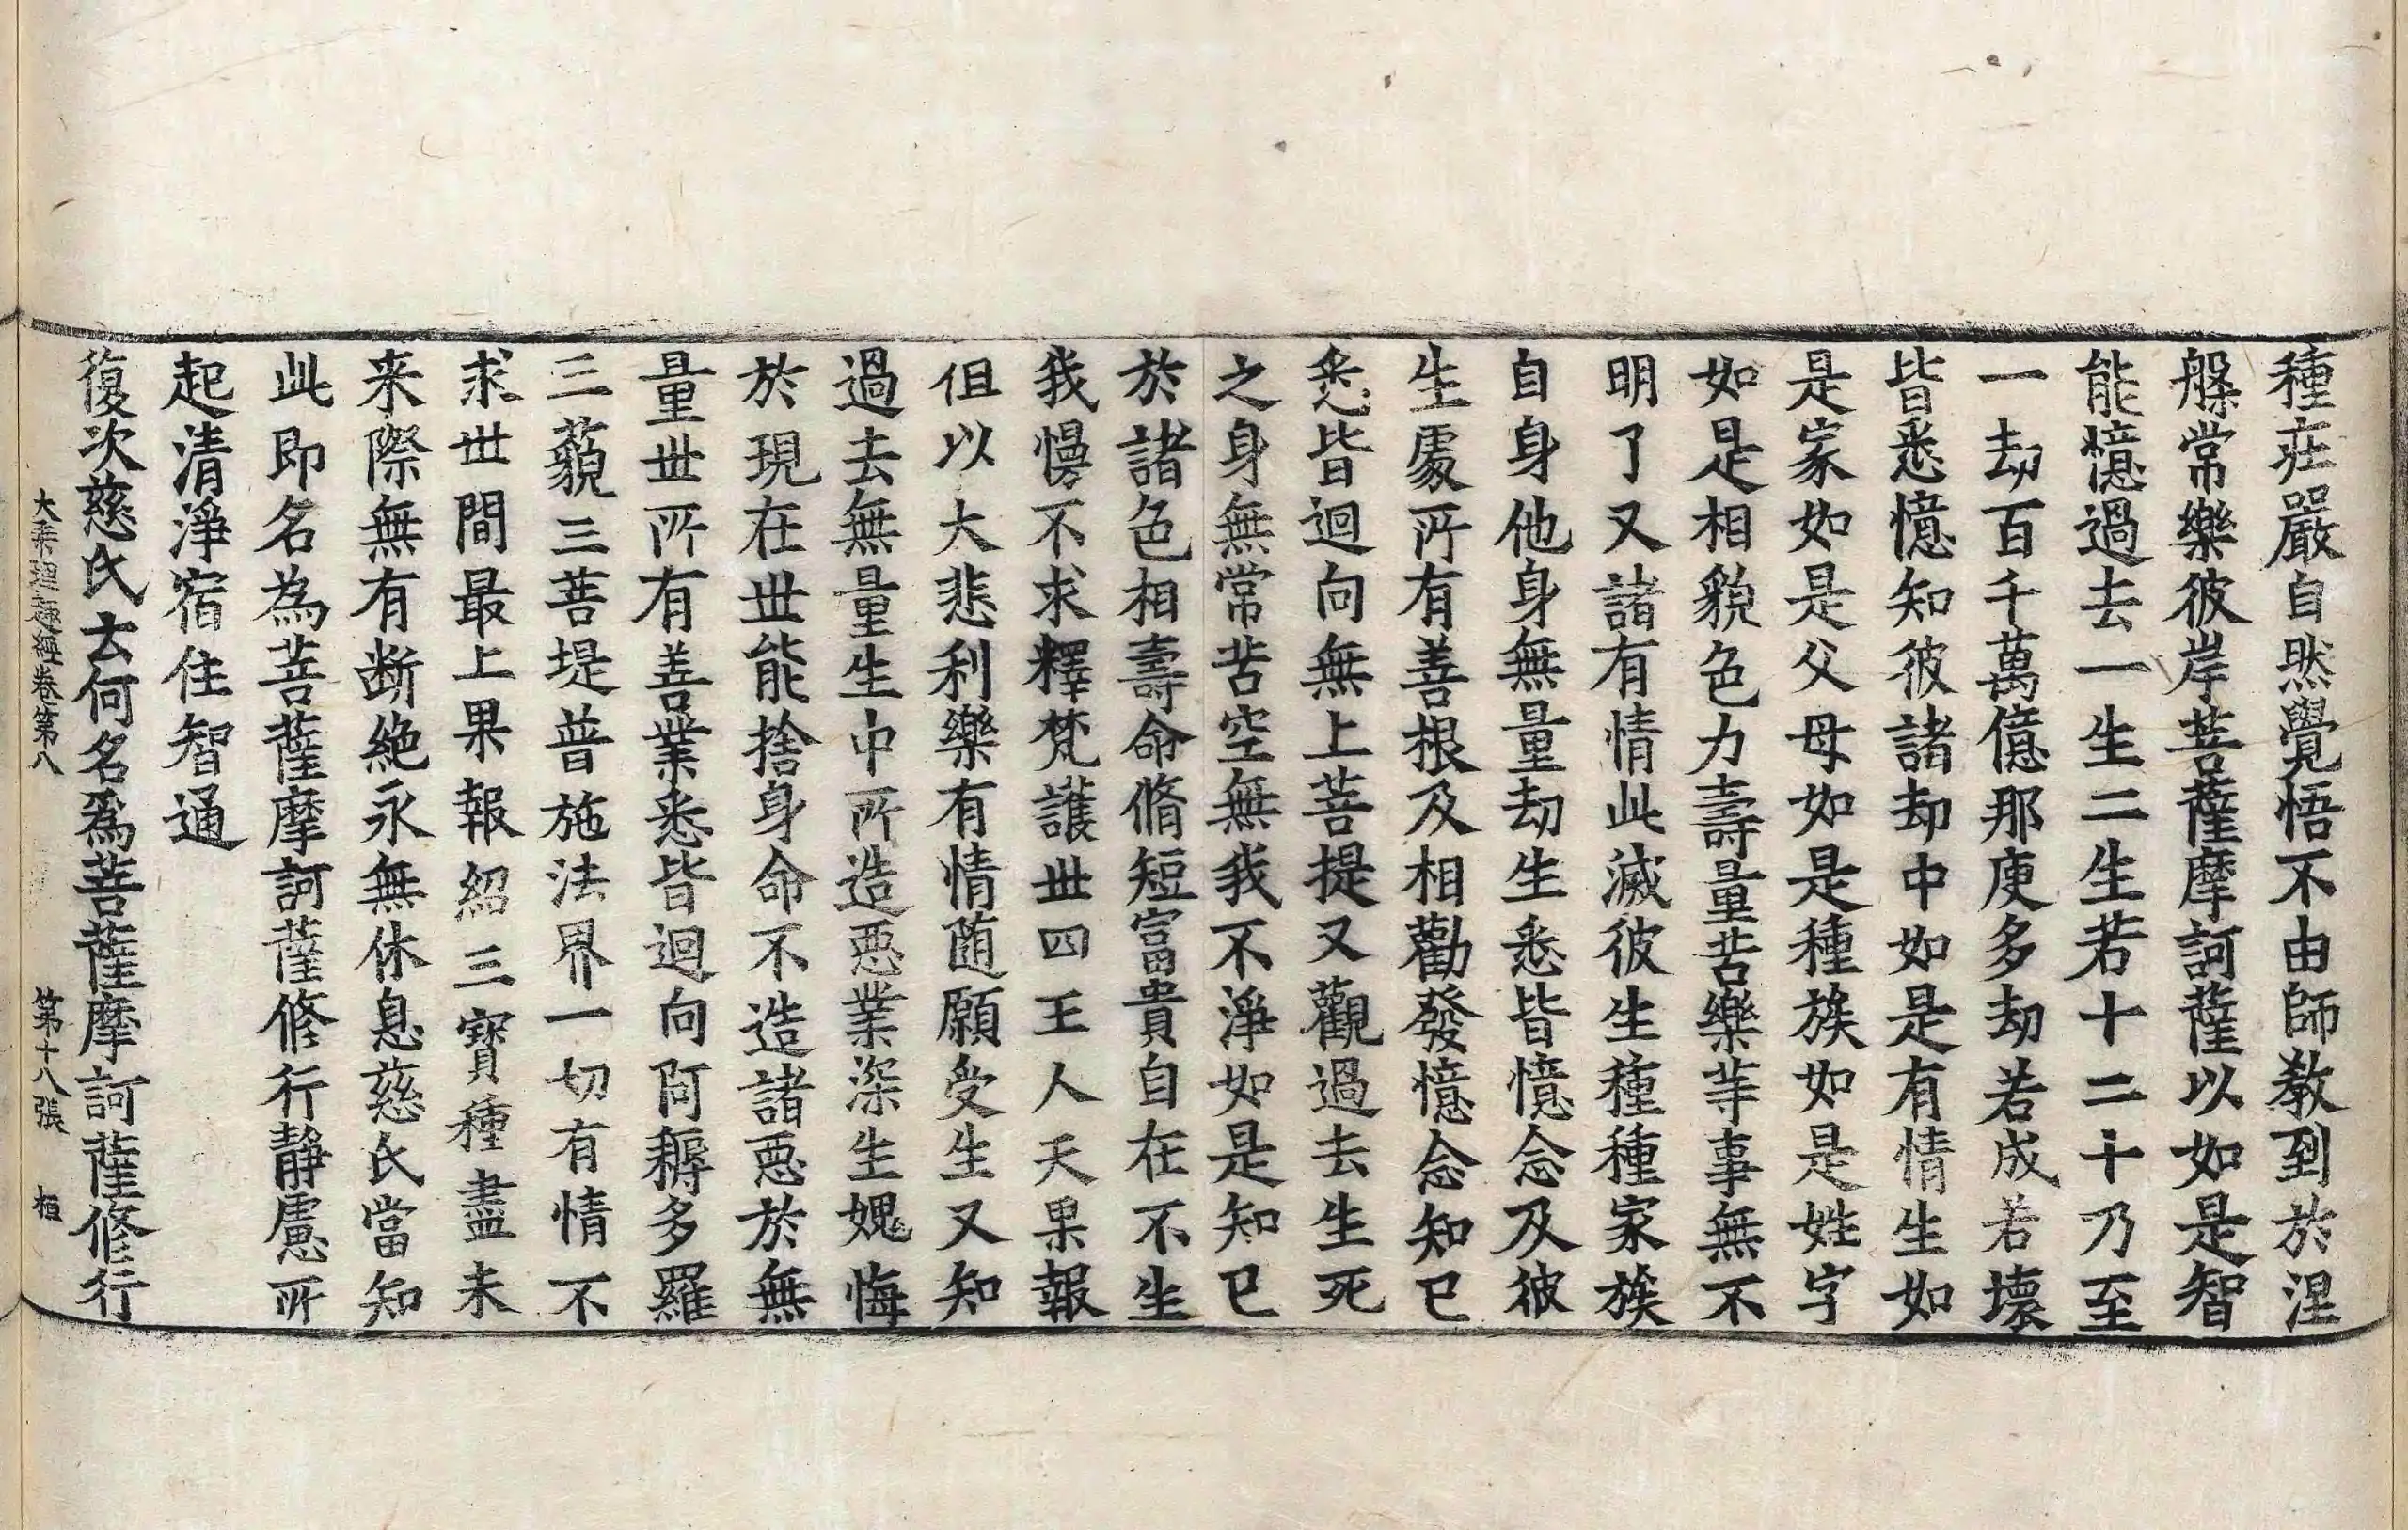 種莊嚴自然覺悟不由師教到於涅
槃常樂彼岸菩薩摩訶薩以如是智
能憶過去一生二生若十二十乃至
一劫百千萬億那庾多劫若成若壞
皆悉憶知彼諸劫中如是有情生如
是家如是父母如是種族如是姓字
如是相貌色力壽量苦樂等事無不
明了又諸有情此滅彼生種種家族
自身他身無量劫生悉皆憶念及彼
生處所有善根及相勸發憶念知已
悉皆迴向無上菩提又觀過去生死
之身無常苦空無我不淨如是知已
於諸色相壽命脩短富貴自在不生
我慢不求釋梵護世四王人天果報
但以大悲利樂有情随願受生又知
過去無量生中所造惡業深生媿悔
於現在世能捨身命不造諸惡於無
量世所有善業悉皆迴向阿耨多羅
三藐三菩提普施法界一切有情不
求世間最上果報紹三寶種盡未
来際無有断絶永無休息慈氏當知
此即名為菩薩摩訶薩修行靜慮所
起清淨宿住智通
復次慈氏云何名爲菩薩摩訶薩修行
大乘理趣經卷第八 第十八張 桓